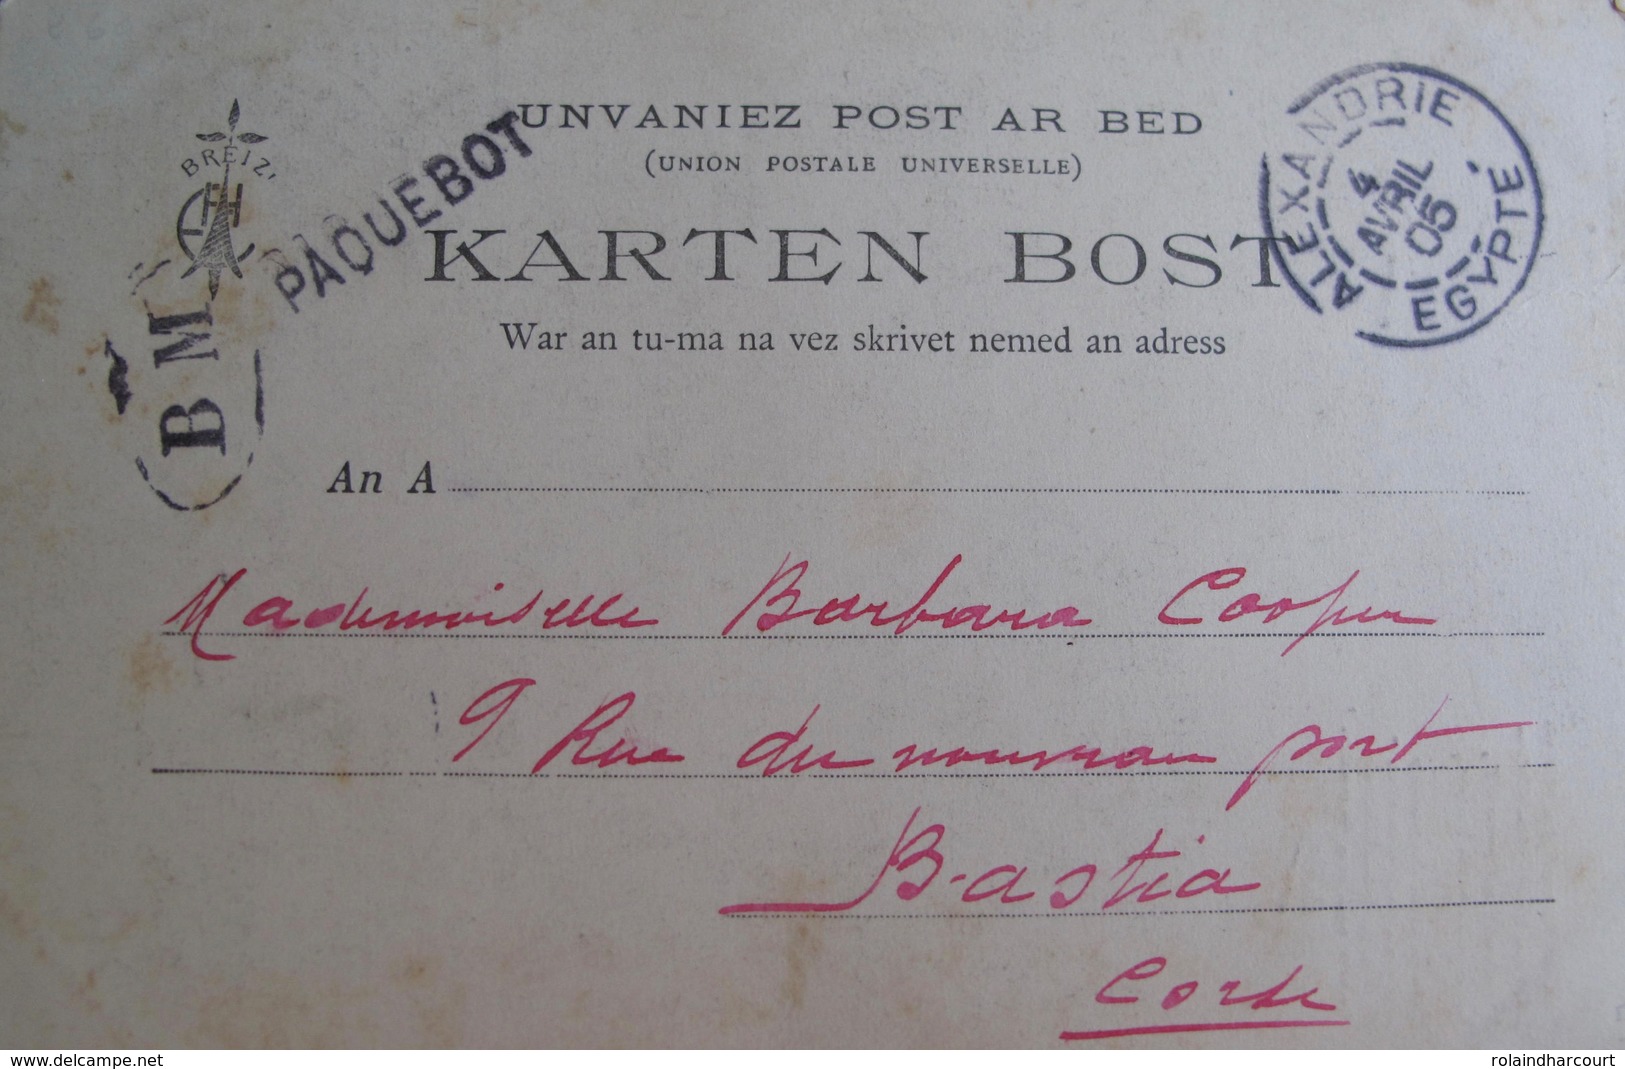 UNVANIEZ POST AR BED
(UNION POSTALE UNIVERSELLE)
BREIZ
PAQUEBOT
KARTEN BOST
ALEXANDRIE
4
AVRIL
05
EGYPTE
War an tu-ma na vez skrivet nemed an adress
B M
An A
Mademoiselle Barbara Cooper
9 Rue du nouveau port
Bastia
Corse
www.delcampe.net
rolaindharcourt